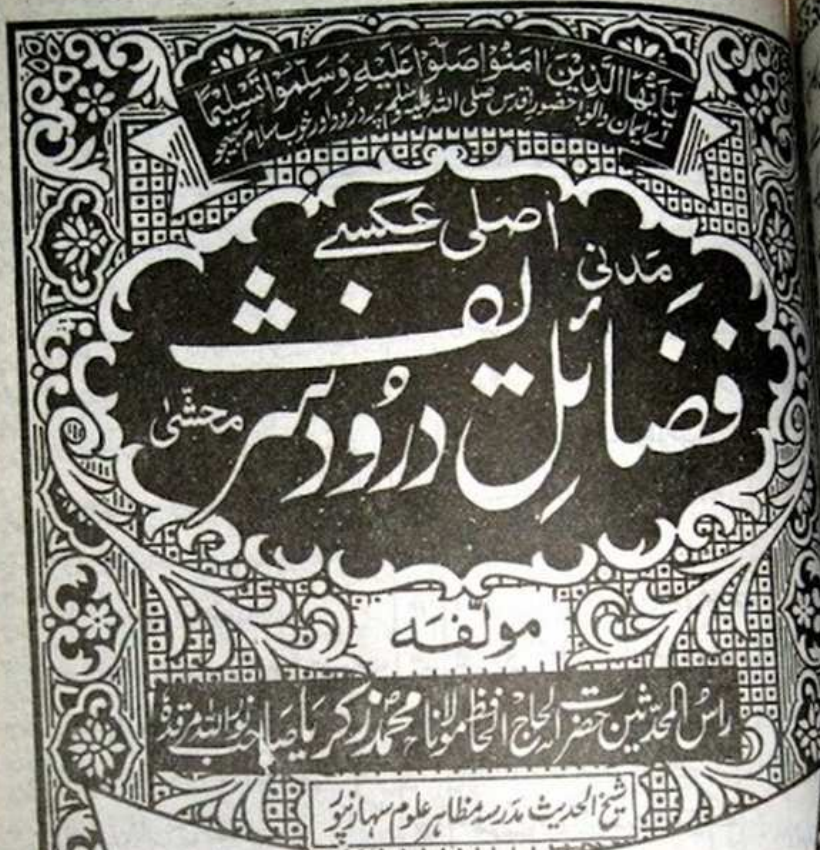 يَاَيُّهَا الَّذِيْنَ اٰمَنُوْا صَلُّوْا عَلَيْهِ وَسَلِّمُوْا تَسْلِيْمًا
اے ایمان والو! حضور اقدس صلی اللہ علیہ وسلم پر درود اور خوب سلام بھیجو
اصلی عکسے
مَدنی
فضَائِل درُود شریف
محشّیٰ
مولّفہَ
راسُ المحدّثین حضرت الحاج الحافظ مولانا محمّد زکریا صاحب نوراللہ مرقدہٗ
شیخ الحدیث مدرسہ مظاہر علوم سہارنپور